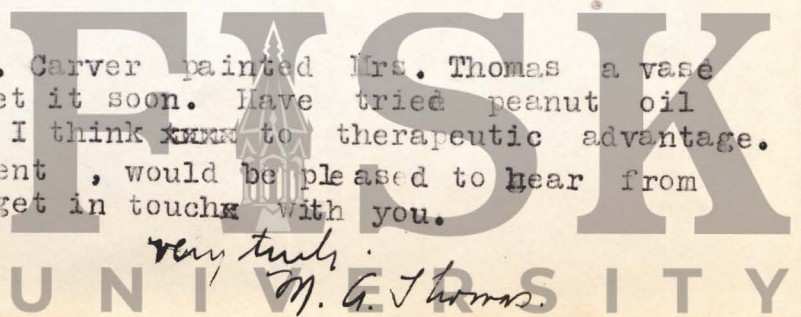 . Carver painted Mrs. Thomas a vase
et it soon. Have tried peanut oil
I think xxxx to therapeutic advantage.
ent , would be pleased to hear from
get in touchx with you.
very truly.
M. A. Thomas.
FISK
UNIVERSITY